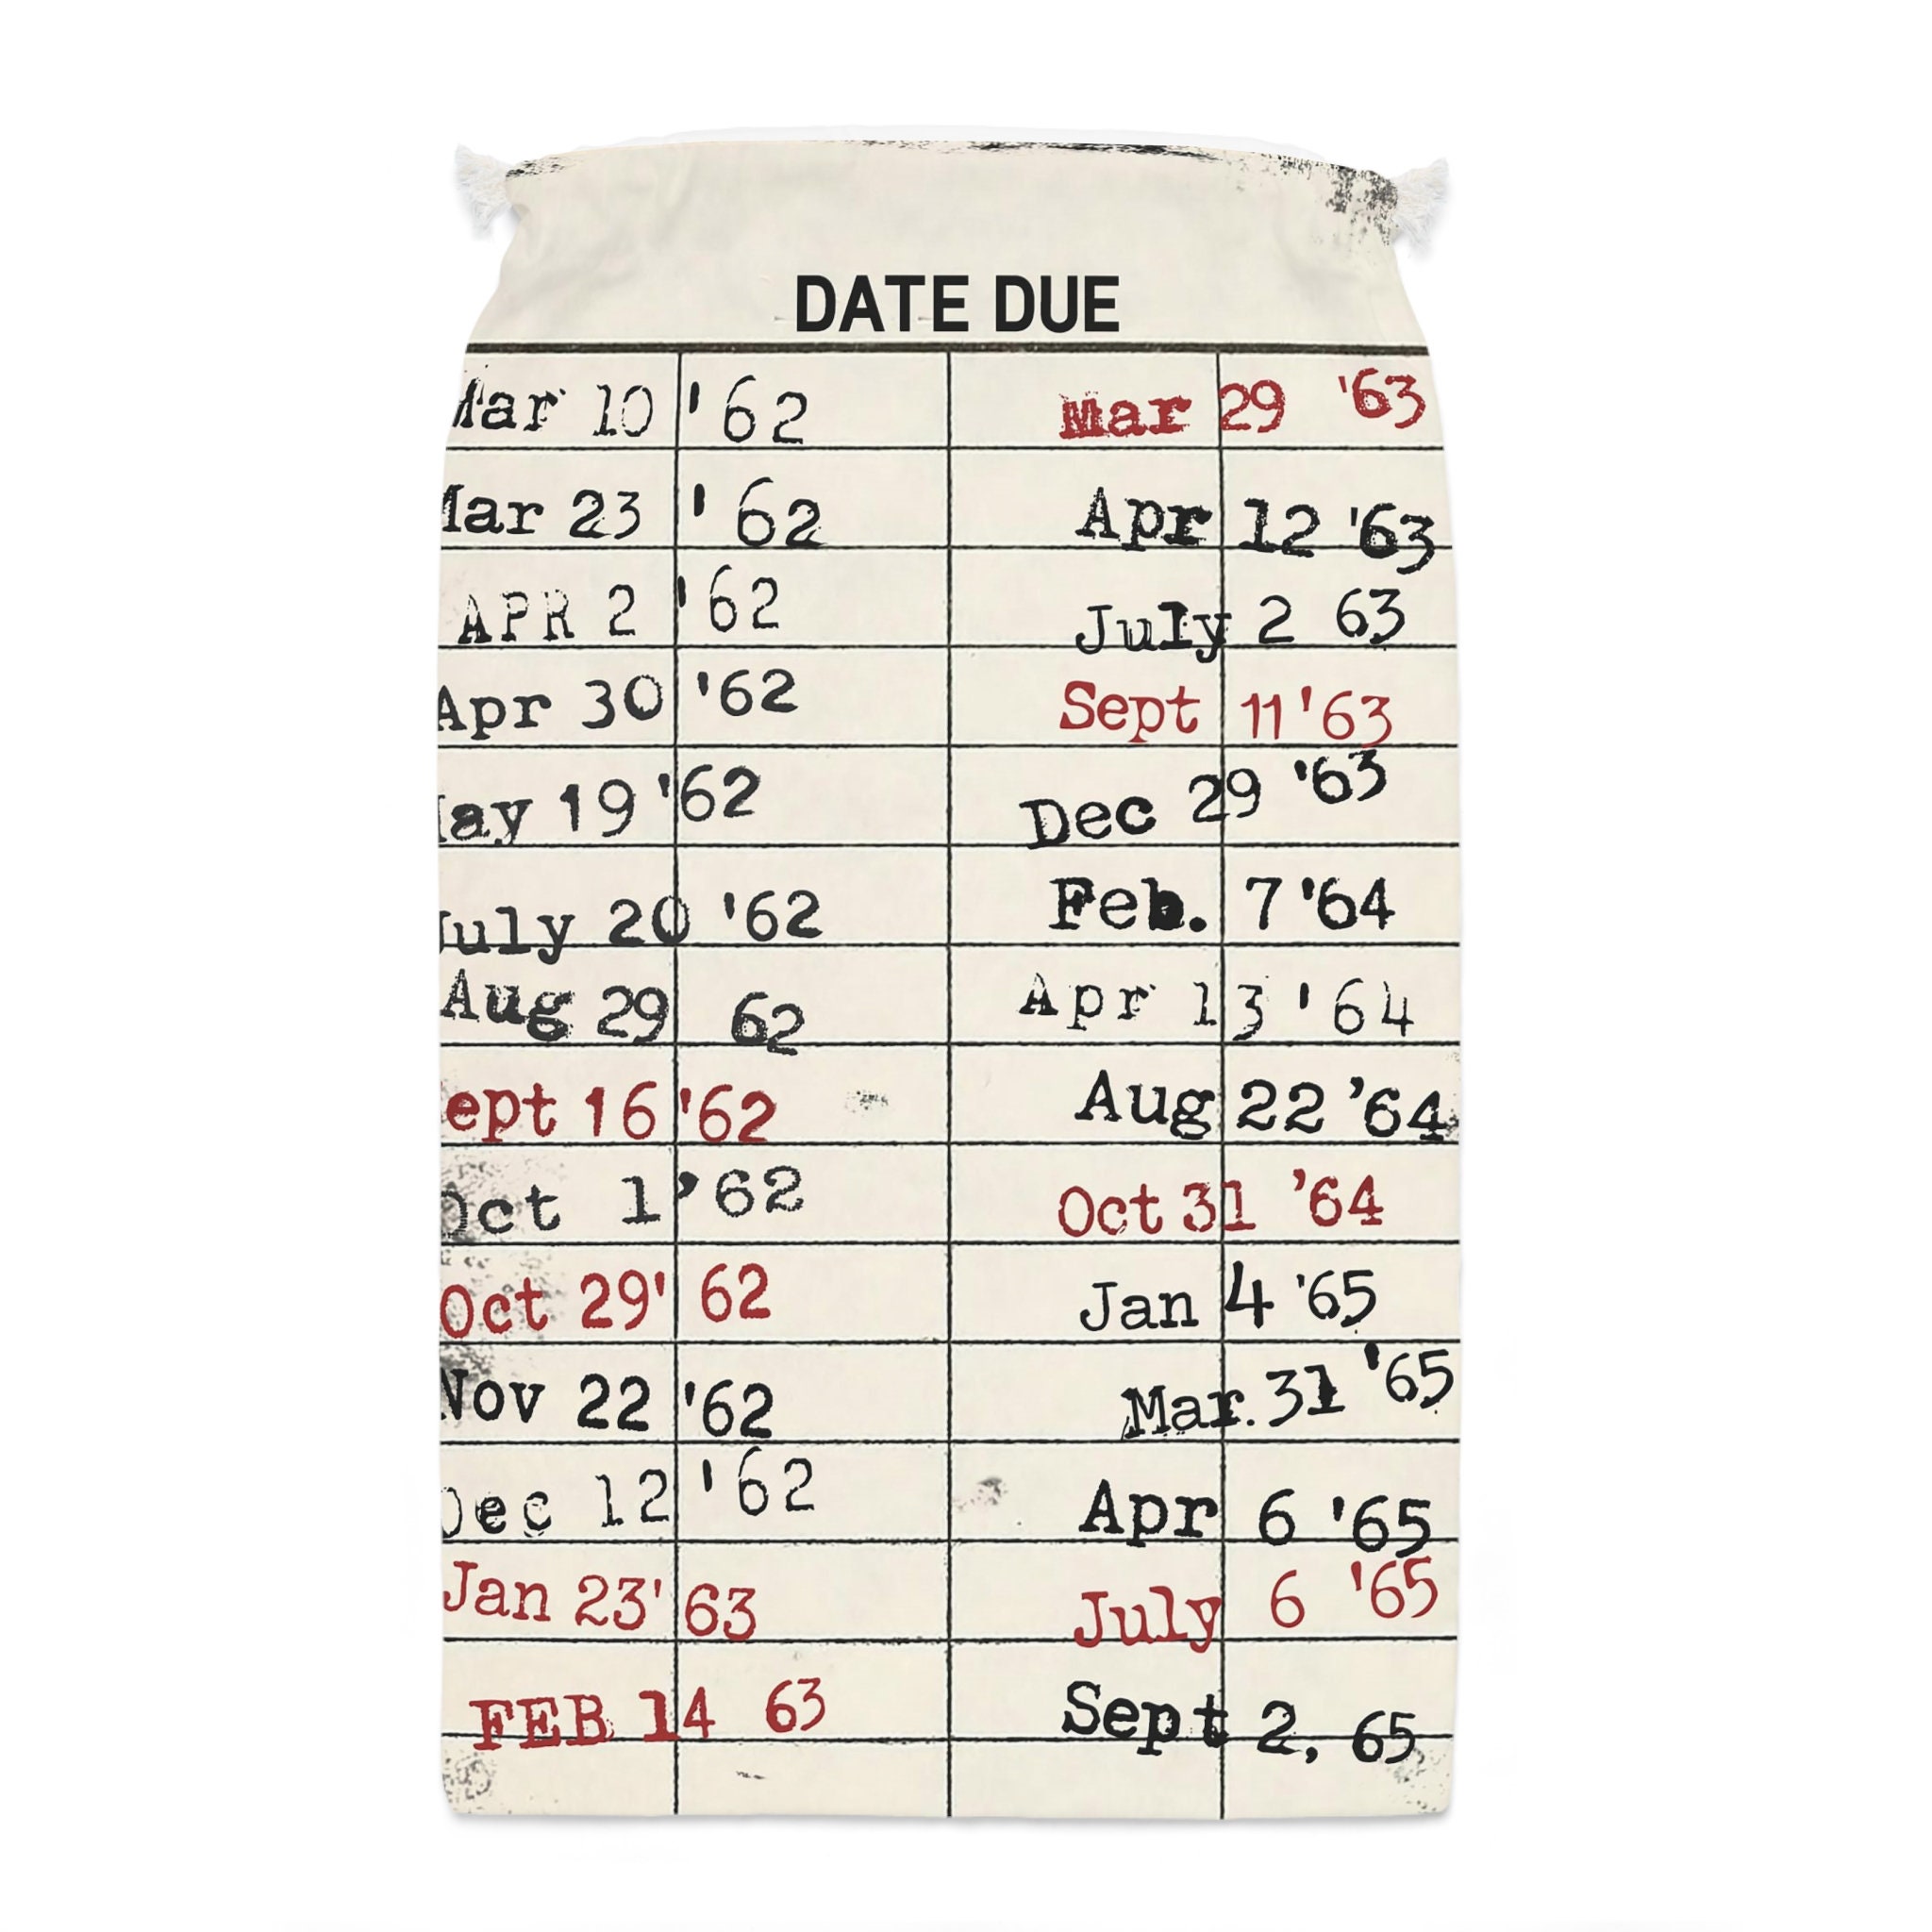 DATE DUE
Mar 10 '62
Mar 23 '62
APR 2 '62
Apr 30 '62
May 19 '62
July 20 '62
Aug 29 62
ept 16 '62
Oct 1 ’62
Oct 29' 62
Nov 22 '62
Dec 12 '62
Jan 23' 63
FEB 14 63
Mar 29 '63
Apr 12 '63
July 2 63
Sept 11 '63
Dec 29 '63
Feb. 7 '64
Apr 13 '64
Aug 22 ’64
Oct 31 ’64
Jan 4 '65
Mar. 31 '65
Apr 6 '65
July 6 '65
Sept 2, 65